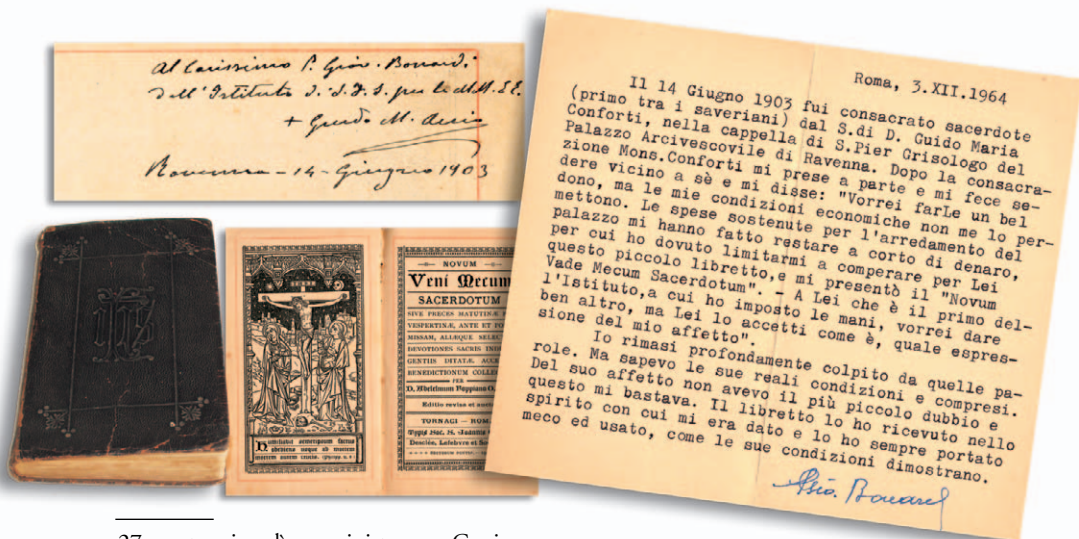 Al Carissimo P. Giov. Bonardi
Dell'Istituto
+ Guido M.
Ravenna - 14 - Giugno 1903
NOVUM
Veni Mecum
SACERDOTUM
SIVE PRECES MATUTINÆ
VESPERTINÆ, ANTE ET PO
MISSAM, ALIÆQUE SELEC
DEVOTIONES SACRIS INDU
GENTIIS DITATÆ. ACCE
BENEDICTIONUM COLLEC
PER
Editio revisa et aucta
TORNACI — ROM
Desclée, Lefebvre et So
Humiliavit semetipsum factus
obediens usque ad mortem
mortem autem crucis.
Roma, 3.XII.1964
Il 14 Giugno 1903 fui consacrato sacerdote
(primo tra i saveriani) dal S.di D. Guido Maria
Conforti, nella cappella di S.Pier Grisologo del
Palazzo Arcivescovile di Ravenna. Dopo la consacra-
zione Mons.Conforti mi prese a parte e mi fece se-
dere vicino a sè e mi disse: "Vorrei farLe un bel
dono, ma le mie condizioni economiche non me lo per-
mettono. Le spese sostenute per l'arredamento del
palazzo mi hanno fatto restare a corto di denaro,
per cui ho dovuto limitarmi a comperare per Lei
questo piccolo libretto,e mi presentò il "Novum
Vade Mecum Sacerdotum". - A Lei che è il primo del-
l'Istituto,a cui ho imposto le mani, vorrei dare
ben altro, ma Lei lo accetti come è, quale espres-
sione del mio affetto".
Io rimasi profondamente colpito da quelle pa-
role. Ma sapevo le sue reali condizioni e compresi.
Del suo affetto non avevo il più piccolo dubbio e
questo mi bastava. Il libretto lo ho ricevuto nello
spirito con cui mi era dato e lo ho sempre portato
meco ed usato, come le sue condizioni dimostrano.
Gio. Bonardi